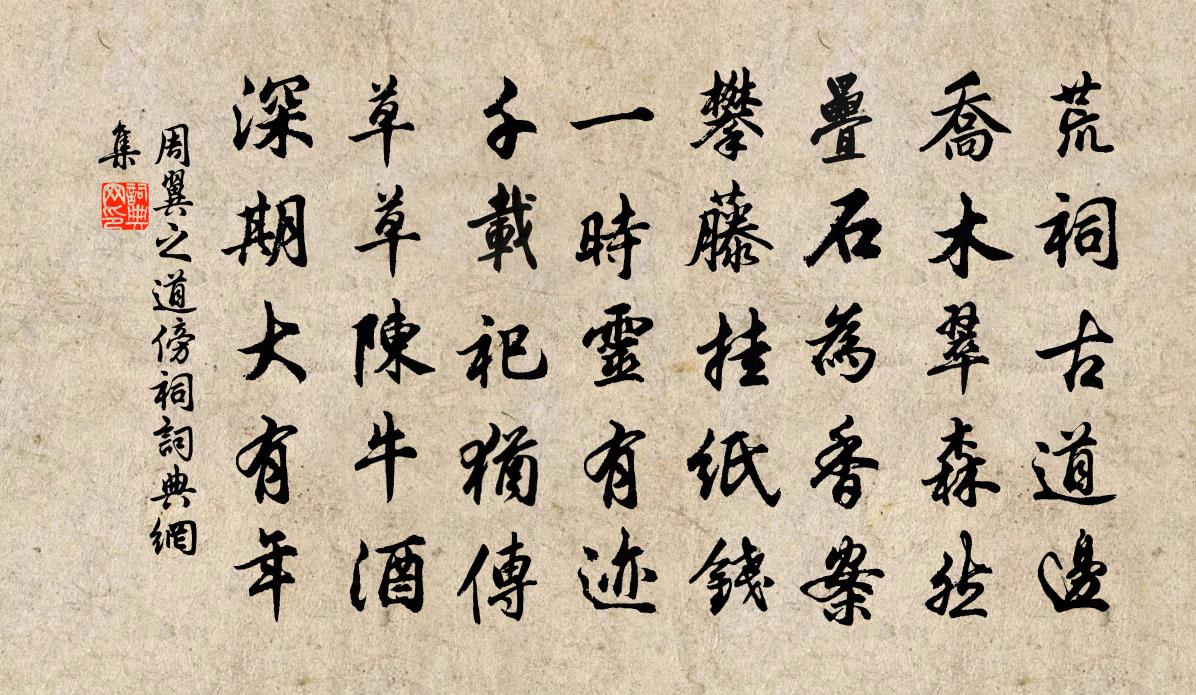 荒祠古道邊
喬木翠森然
疊石為香案
攀藤挂紙錢
一時靈有迹
千載祀猶傳
草草陳牛酒
深期大有年
周翼之道傍祠詞典網
集
詞典网印